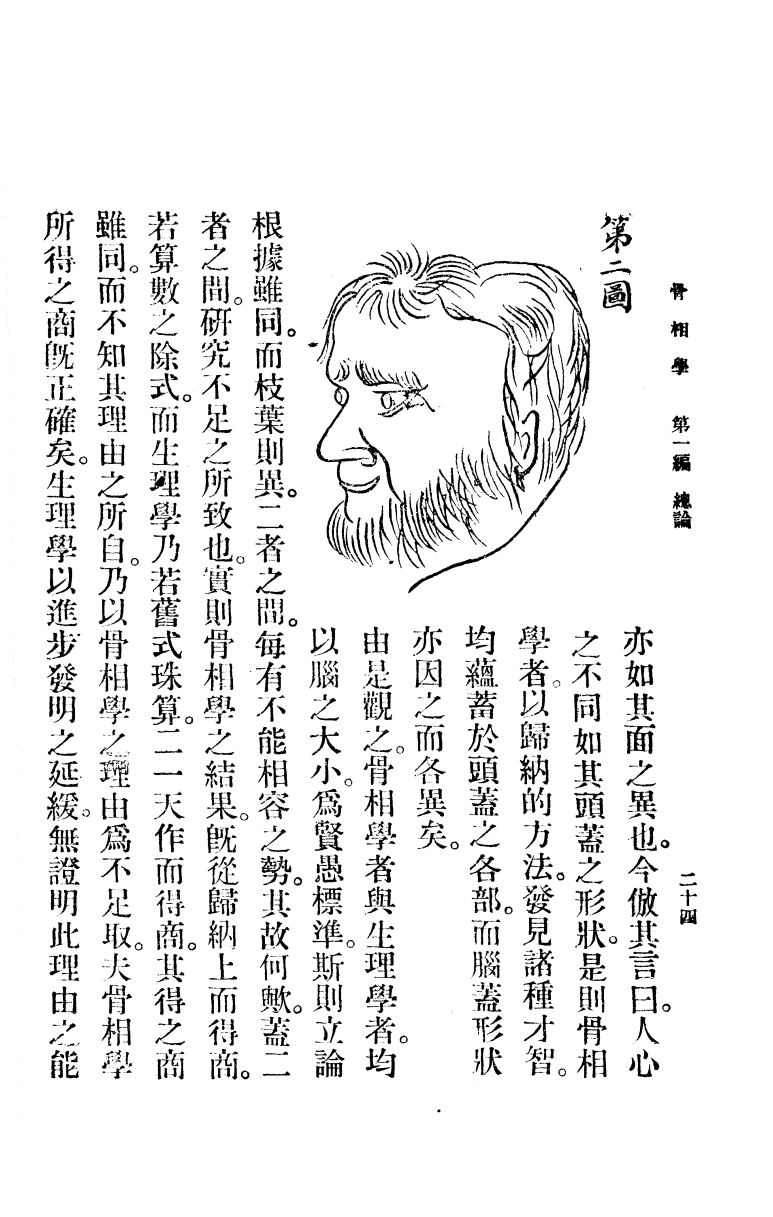 骨相學　第一編　總論
二十四
第二圖
亦如其面之異也。今倣其言曰。人心
之不同如其頭蓋之形狀。是則骨相
學者。以歸納的方法。發見諸種才智。
均蘊蓄於頭蓋之各部。而腦蓋形狀
亦因之而各異矣。
由是觀之。骨相學者與生理學者。均
以腦之大小。爲賢愚標準。斯則立論
根據雖同。而枝葉則異。二者之間。每有不能相容之勢。其故何歟。蓋二
者之間。硏究不足之所致也。實則骨相學之結果。旣從歸納上而得商。
若算數之除式。而生理學乃若舊式珠算。二一天作而得商。其得之商
雖同。而不知其理由之所自。乃以骨相學之理由爲不足取。夫骨相學
所得之商旣正確矣。生理學以進步發明之延緩。無證明此理由之能